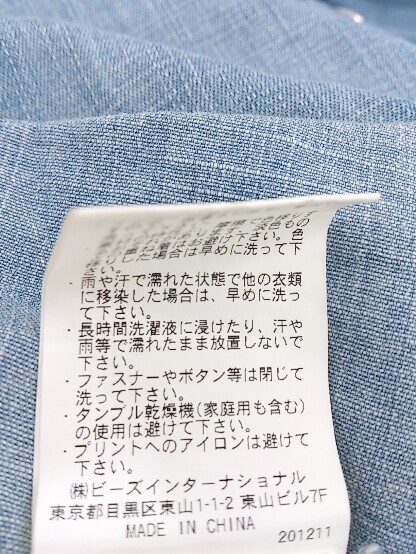 重ね着はお避け下さい。色
した場合は早めに洗って下
さい。
・雨や汗で濡れた状態で他の衣類
に移染した場合は、早めに洗っ
て下さい。
・長時間洗濯液に浸けたり、汗や
雨等で濡れたまま放置しないで
下さい。
・ファスナーやボタン等は閉じて
洗って下さい。
・タンブル乾燥機(家庭用も含む)
の使用は避けて下さい。
・プリントへのアイロンは避けて
下さい。
㈱ビーズインターナショナル
東京都目黒区東山1-1-2 東山ビル7F
MADE IN CHINA
201211